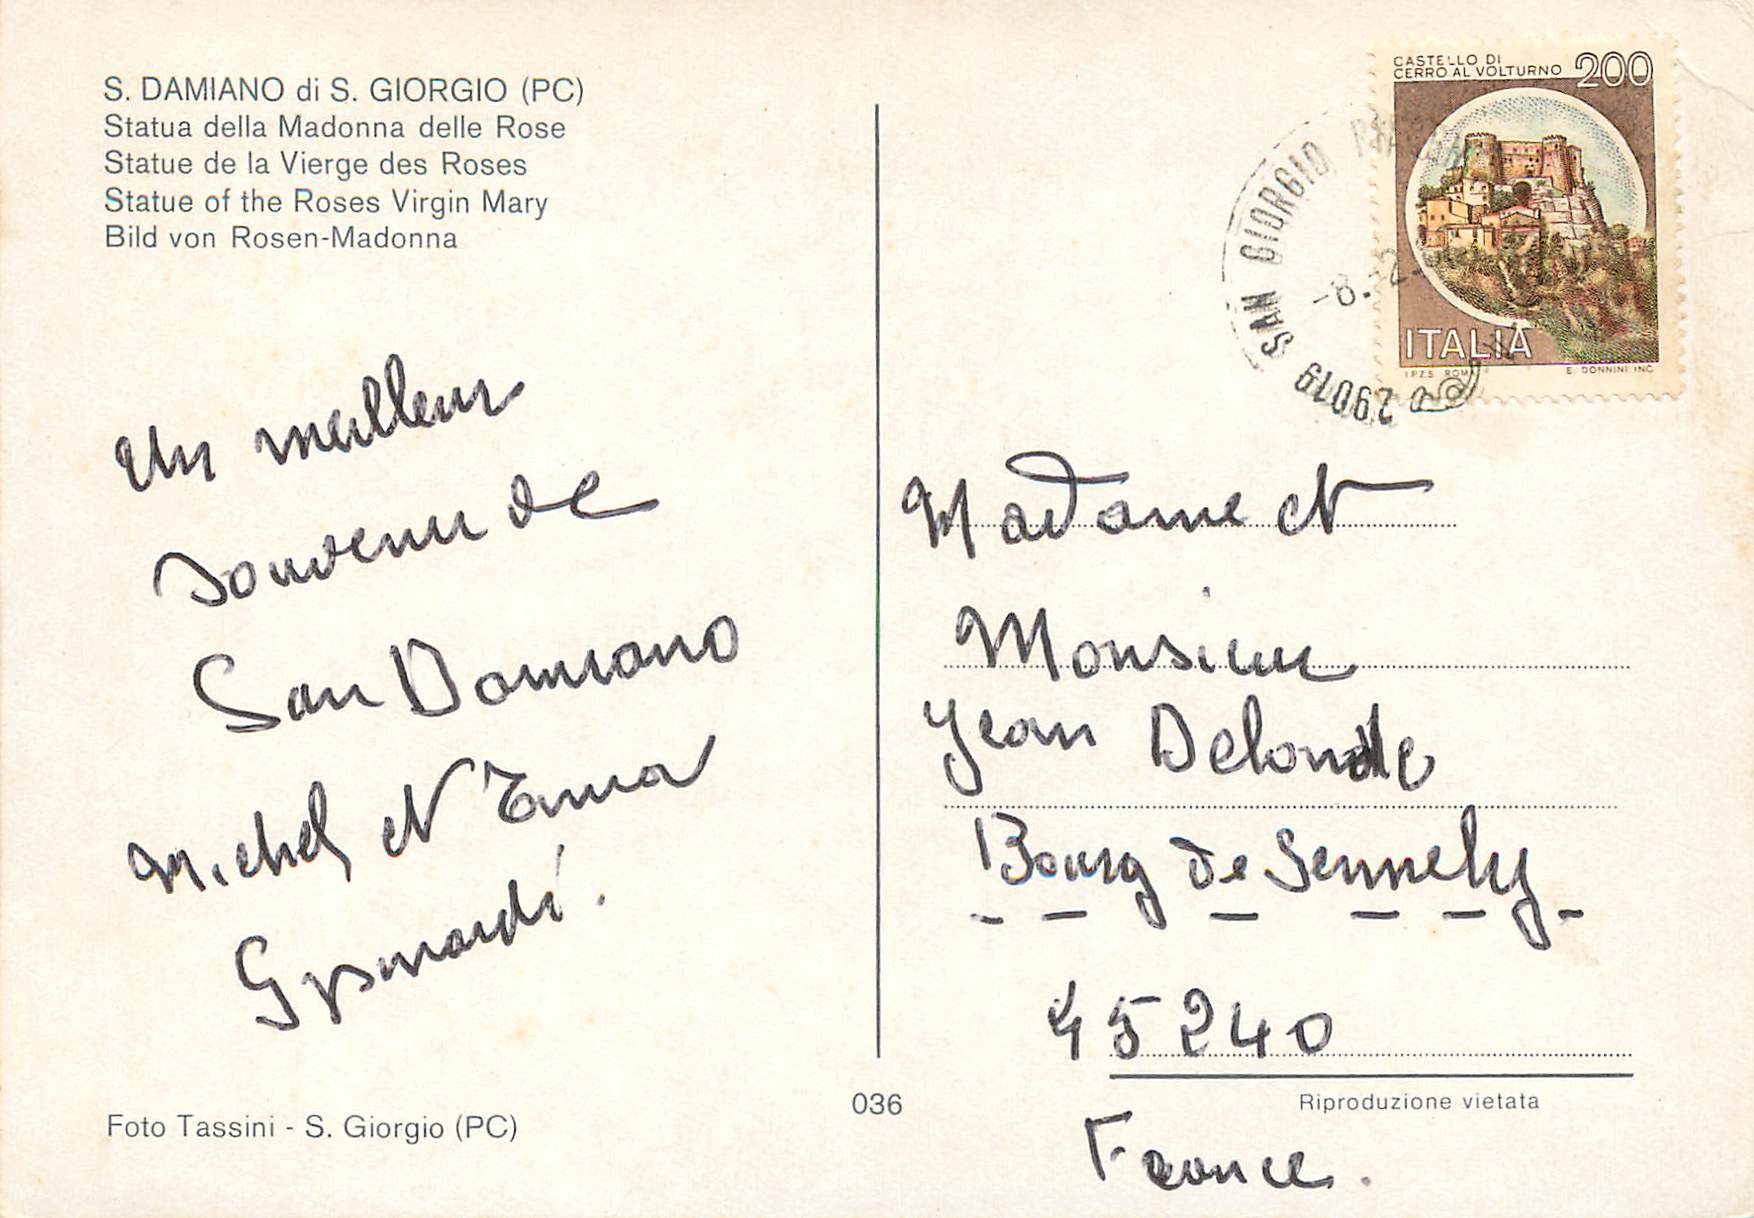 S. DAMIANO di S. GIORGIO (PC)
Statua della Madonna delle Rose
Statue de la Vierge des Roses
Statue of the Roses Virgin Mary
Bild von Rosen-Madonna
Un meilleur
souvenir de
San Damiano
Michel et
Foto Tassini - S. Giorgio (PC)
036
CASTELLO DI
CERRO AL VOLTURNO 200
ITALIA
I.P.Z.S. ROMA E. DONNINI INC.
29019 SAN GIORGIO
-8.-2.
Madame et
Monsieur
Jean Delonde
Bourg de Sennely
45240
Riproduzione vietata
France.